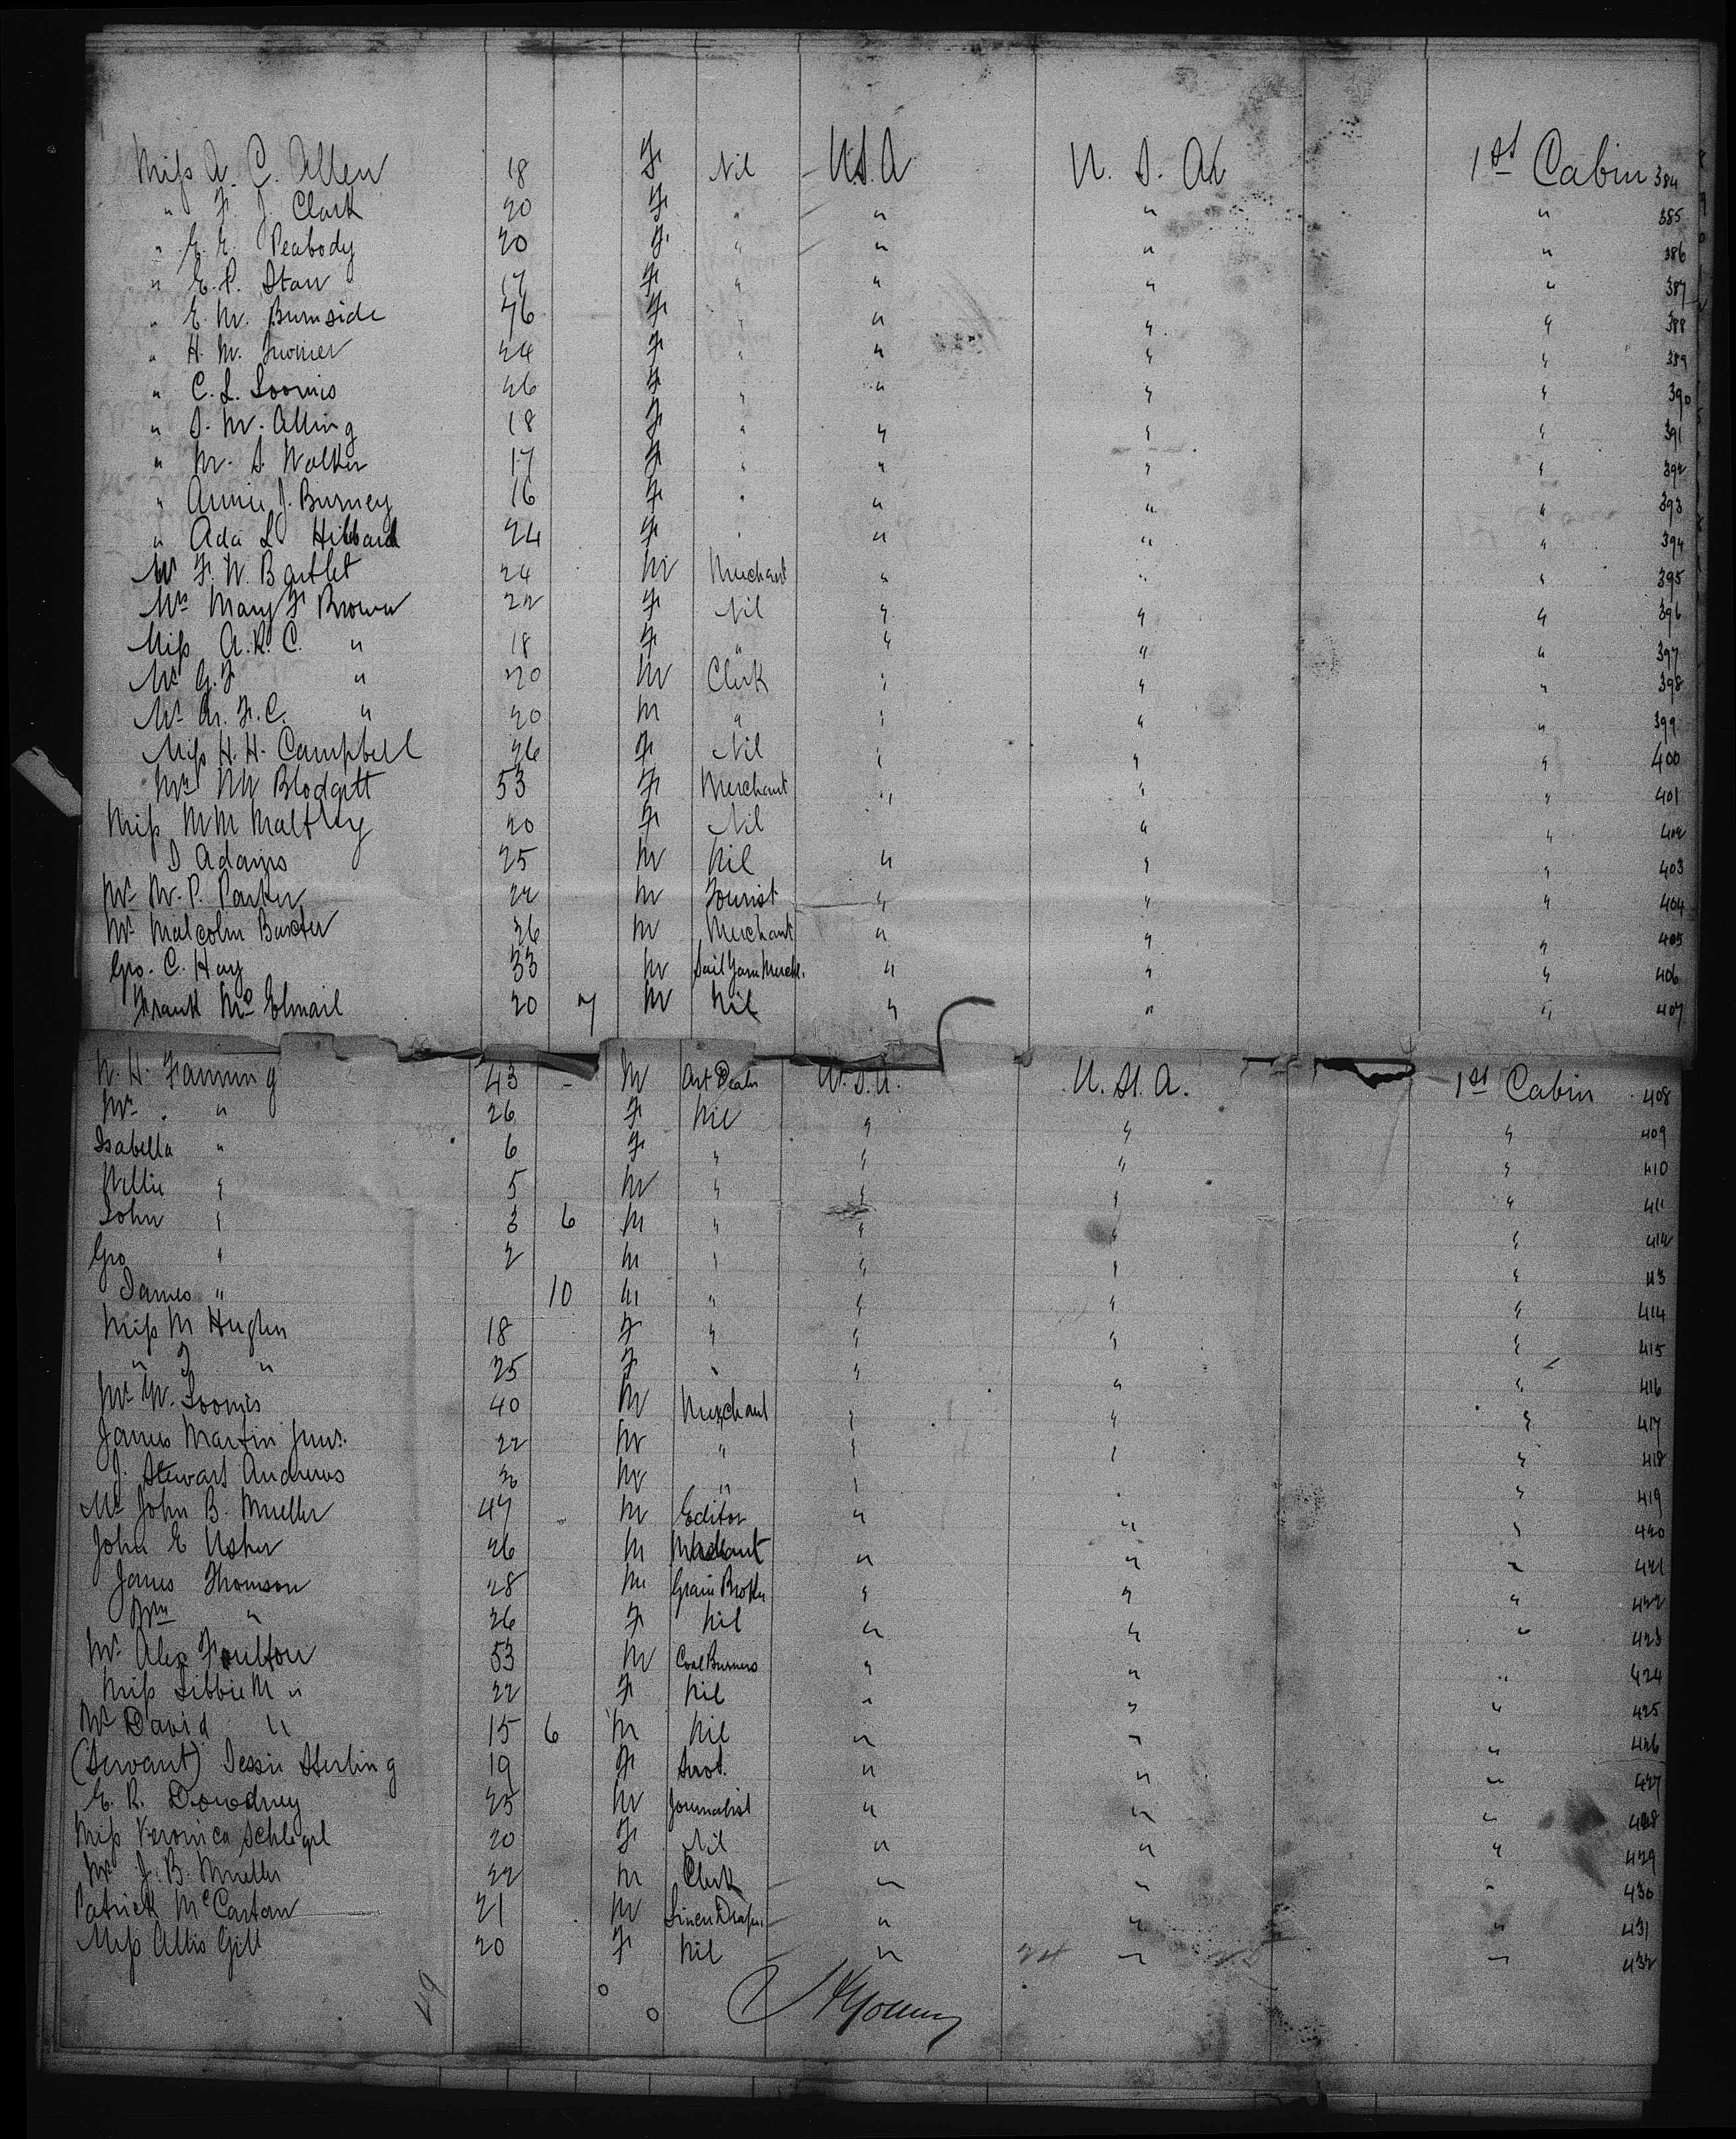 Miss A. C. Allen 18 F Nil U.S.A U. S. A 1st Cabin 384
" F. J. Clark 20 F " " " " 385
" E. E. Peabody 20 F " " " " 386
" E. P. Starr 17 F " " " " 387
" E. M. Burnside 46 F " " " " 388
" H. M. 24 F " " " " 389
" C. L. Loomis 26 F " " " " 390
" S. M. Alling 18 F " " " " 391
" M. S. Walker 17 F " " " " 392
" Annie J. Burney 16 F " " " " 393
" Ada L Hibbard 24 F " " " " 394
Mr F. W. Bartlet 24 M Merchant " " " 395
Mrs Mary F Brown 22 F Nil " " " 396
Miss A. R. C. " 18 F " " " " 397
Mr G. F " 20 M Clerk " " " 398
Mr A. F. C. " 20 M " " " " 399
Miss H. H. Campbell 26 F Nil " " " 400
Mrs W Blodgett 53 F Merchant " " " 401
Miss M M Maltby 20 F Nil " " 402
D Adams 25 M Nil " " " 403
Mr M. P. Parker 22 M Tourist " " " 404
Mr Malcolm Baxter 26 M Merchant " " " 405
Geo. C. Hay 33 M Sail Yarn Mercht. " " " 406
Frank Mc Elmail 20 7 M Nil " " " 407
W. H. Fanning 43 - M Art Dealer U.S.A. U.S.A. 1st Cabin 408
Mrs. " 26 F Nil " " " 409
Isabella " 6 F " " " " 410
Willie " 5 M " " " " 411
John " 3 6 M " " " " 412
Geo " 2 M " " " " 413
James " 10 M " " " " 414
Miss M Hughes 18 F " " " " 415
" J " 25 F " " " " 416
Mr W. Loomis 40 M Merchant " " " 417
James Martin Junr. 22 M " " " " 418
J. Stewart Andrews 30 M " " " " 419
Mr John B. Mueller 47 M Editor " " " 420
John E Usher 26 M Merchant " " " 421
James Thomson 28 M Grain Broker " " " 422
Mrs " 26 F Nil " " " 423
Mr Alex Foulton 53 M Coal Business " " " 424
Miss Libbie M " 22 F Nil " " " 425
Mr David " 15 6 M Nil " " " 426
(Servant) Jessie Sterling 19 F Servt. " " " 427
E. R. Dowdney 25 M Journalist " " " 428
Miss Veronica Schlegel 20 F Nil " " " 429
Mr J. B. Mueller 22 M Clerk " " " 430
Patrick McCartan 21 M Linen Draper " " " 431
Miss Allis Gill 20 F Nil " 24 " " 432
49
Young